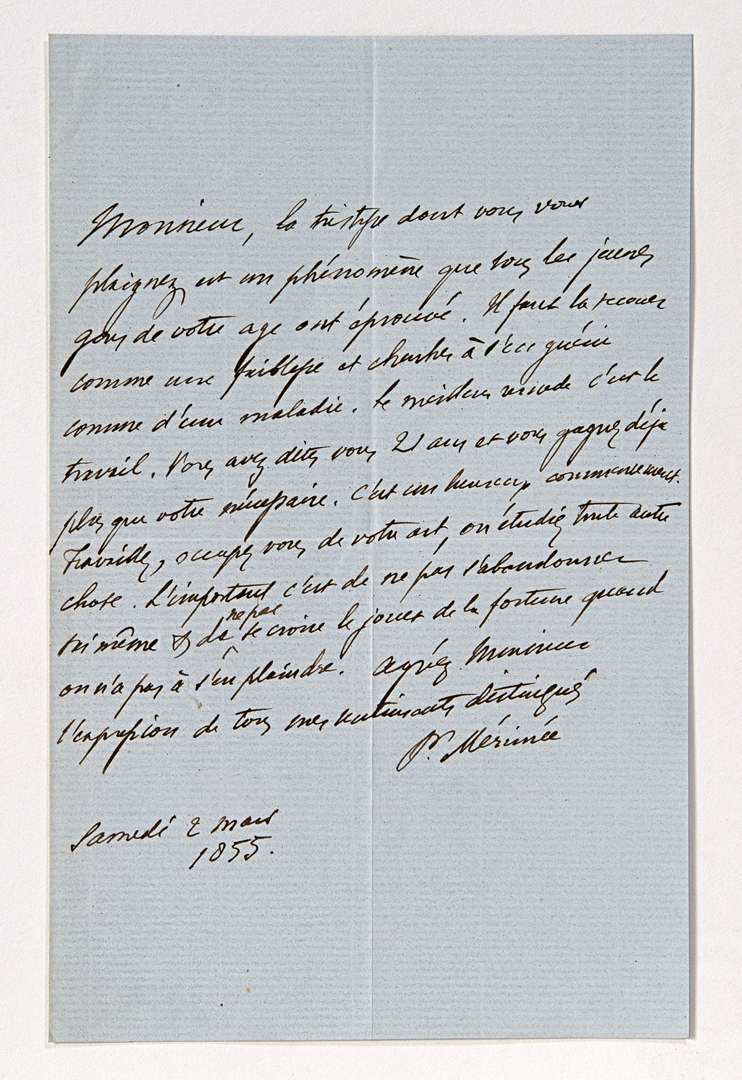 Monsieur, la tristesse dont vous vous
plaignez est un phénomène que tous les jeunes
gens de votre age ont éprouvé. Il faut la secouer
comme une faiblesse et chercher à s'en guérir
comme d'une maladie. Le meilleur remède c'est le
travail. Vous avez dites vous 21 ans et vous gagnez déja
plus que votre nécessaire. C'est un heureux commencement.
Travaillez, occupez vous de votre art, ou étudiez toute autre
chose. L'important c'est de ne pas s'abandonner
soi même & de ne pas se croire le jouet de la fortune quand
on n'a pas à s'en plaindre. Agréez Monsieur
l'expression de tous mes sentiments distingués
Pr Mérimée
Samedi 2 mars
1855.